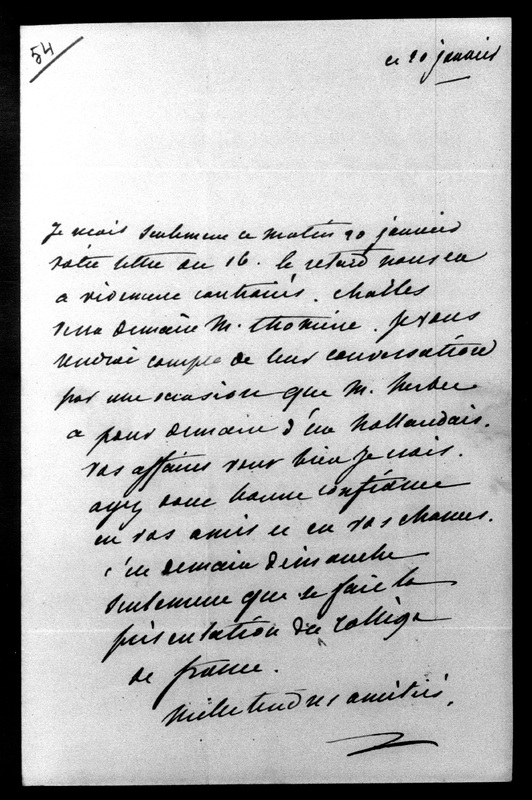 54
ce 20 janvier
Je reçois seulement ce matin 20 janvier
votre lettre du 16. le retard nous en
a vivement contrariés. Charles
verra demain M. thomine. Je vous
rendrai compte de leur conversation
par une occasion que M. Herbet
a pour demain d'un hollandais.
vos affaires vont bien je crois.
ayez donc bonne confiance
en vos amis et en vos chances.
c'est demain dimanche
seulement que se fait la
présentation du Collège
de france.
Mille tendres amitiés.